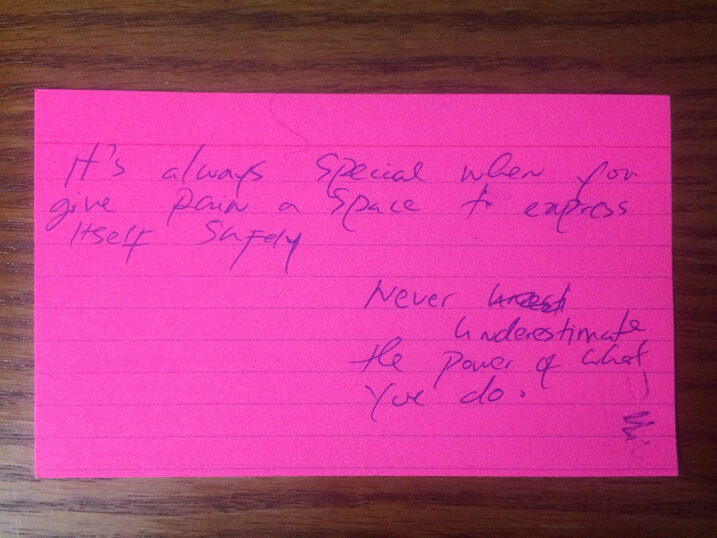 It's always special when you
give pain a space to express
itself safely
Never
underestimate
the power of what
you do.